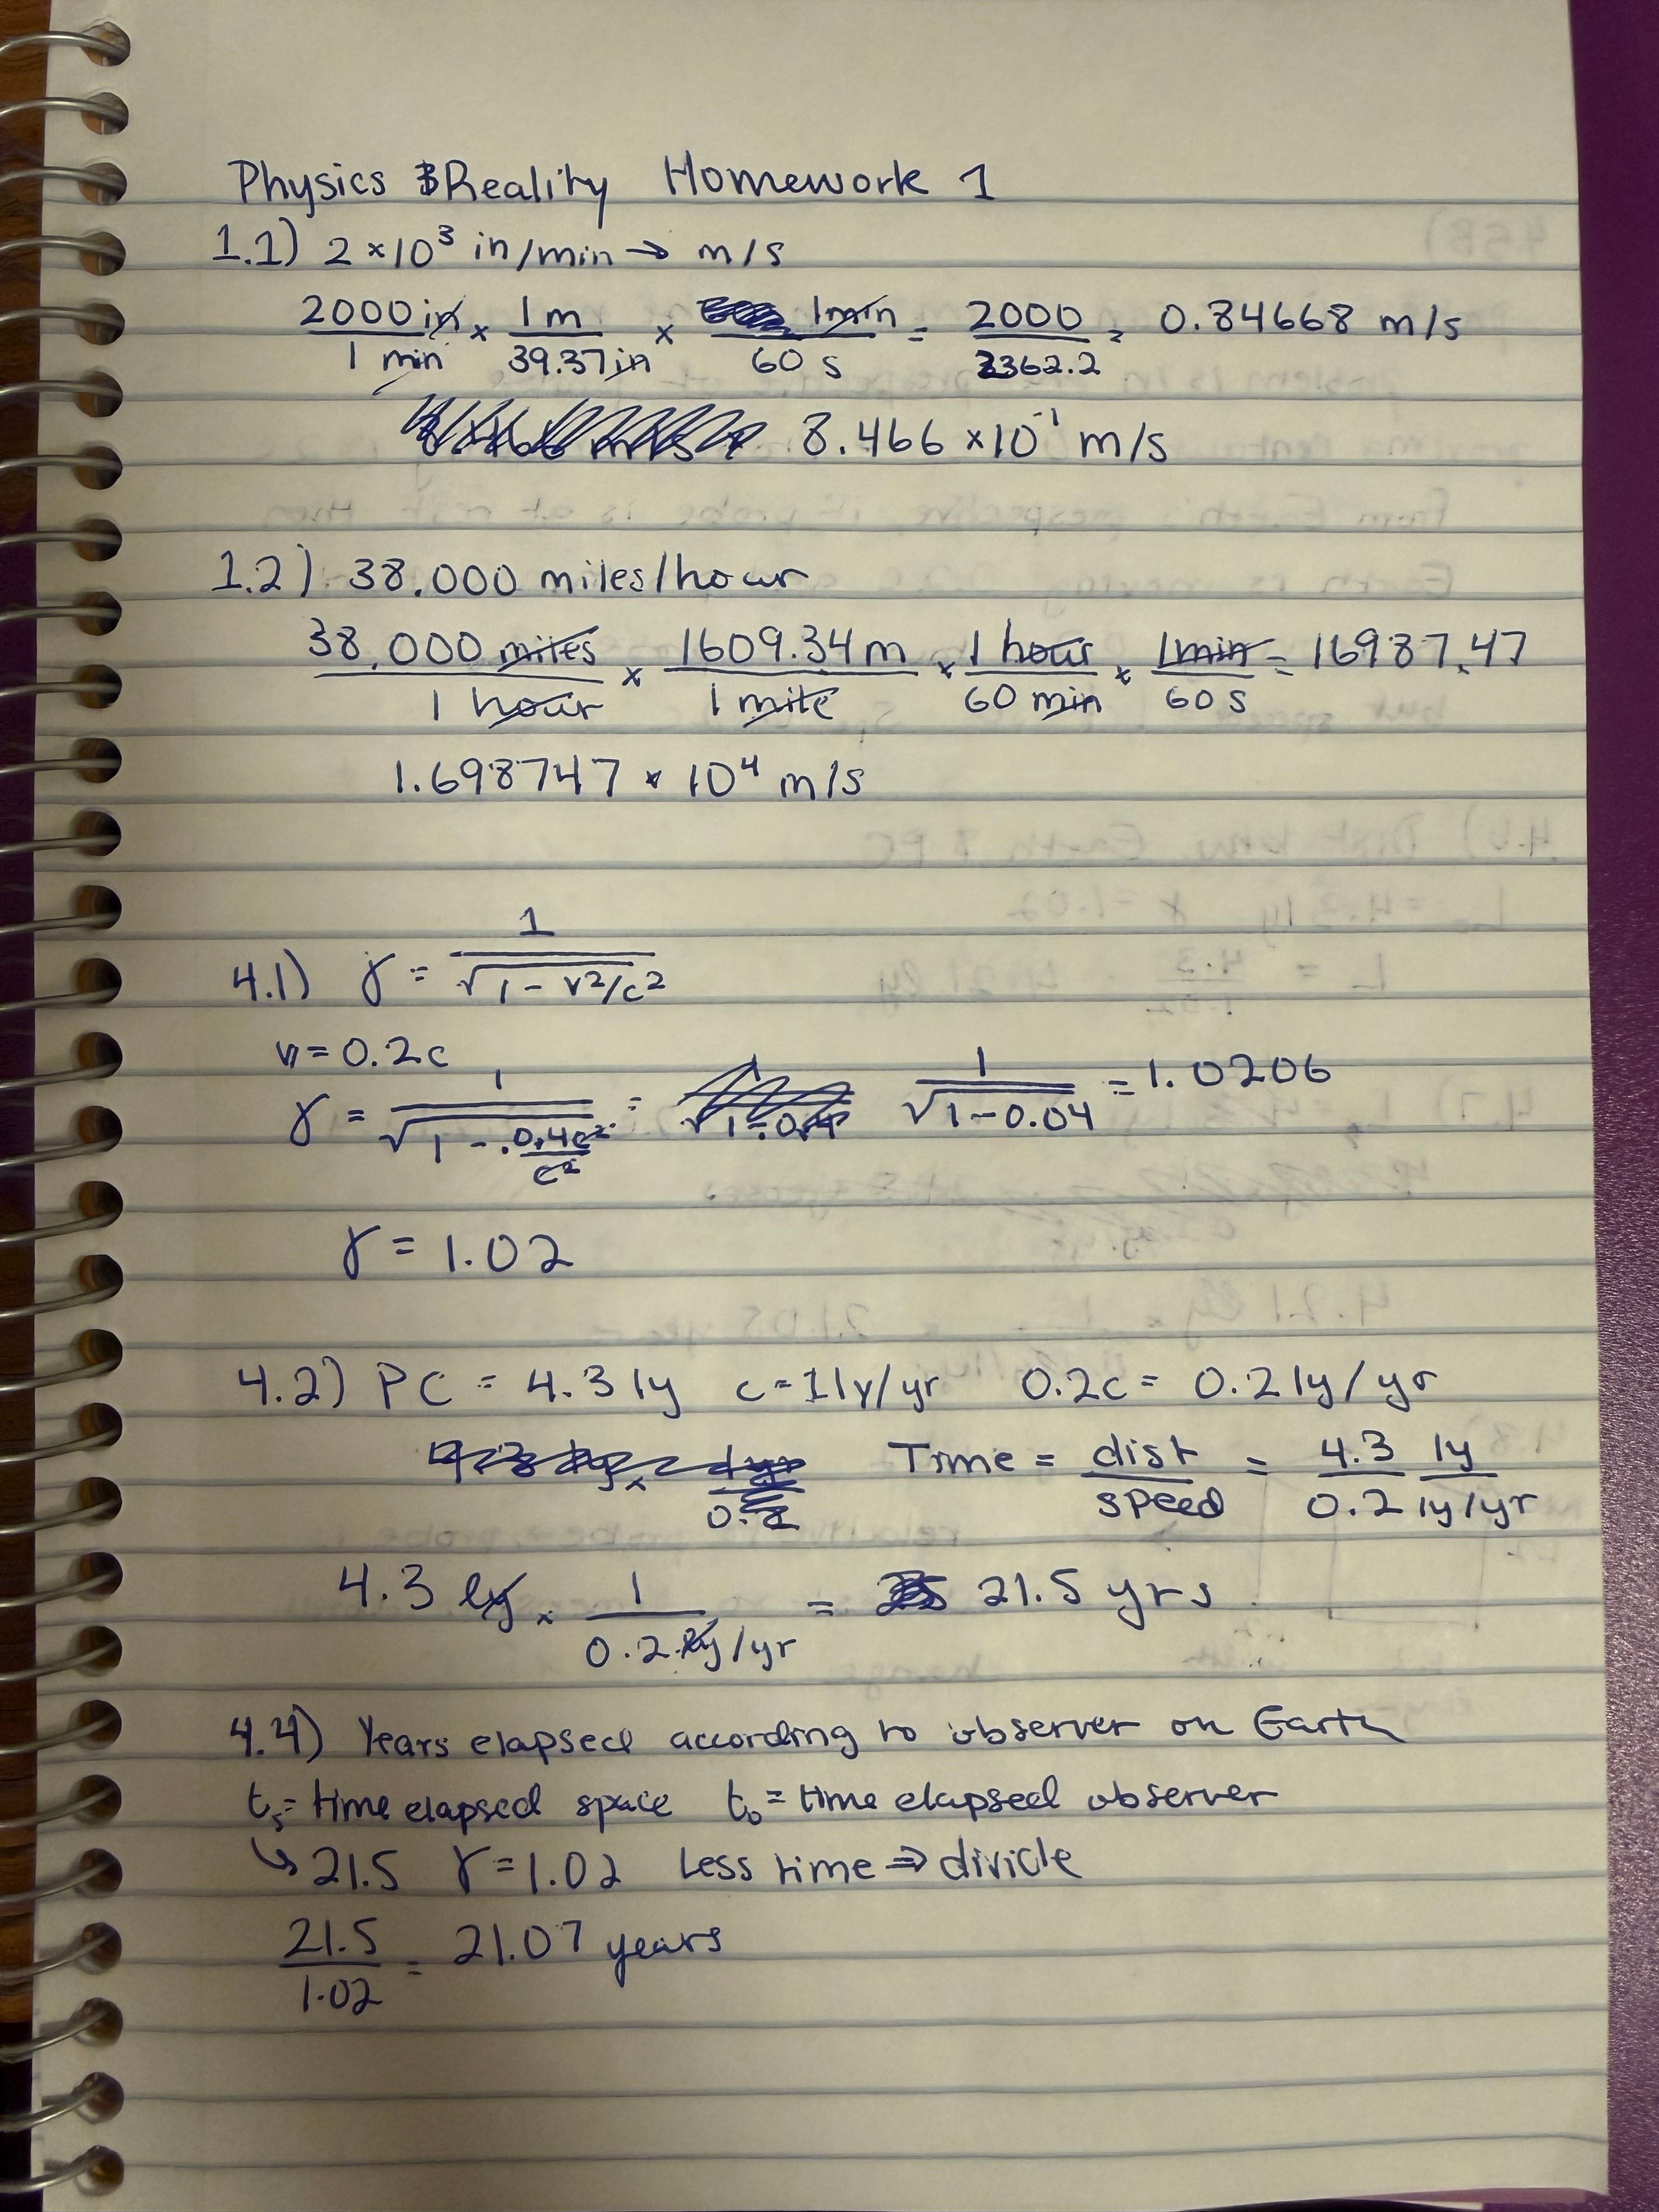 Physics & Reality Homework 1
1.1) 2 × 10³ in/min → m/s
2000 in / 1 min × 1 m / 39.37 in × 1 min / 60 s = 2000 / 2362.2 = 0.84668 m/s
8.466 × 10⁻¹ m/s
1.2) 38,000 miles/hour
38,000 miles / 1 hour × 1609.34 m / 1 mile × 1 hour / 60 min × 1 min / 60 s = 16987.47
1.698747 × 10⁴ m/s
4.1) γ = 1 / √(1 - v²/c²)
v = 0.2c
γ = 1 / √(1 - .0.4c²/c²) = 1 / √(1 - 0.04) = 1.0206
γ = 1.02
4.2) PC = 4.3 ly c = 1 ly/yr 0.2c = 0.2 ly/yr
Time = dist / speed = 4.3 ly / 0.2 ly/yr
4.3 ly × 1 / 0.2 ly/yr = 21.5 yrs
4.4) Years elapsed according to observer on Earth
tₛ = time elapsed space t₀ = time elapsed observer
↳ 21.5 γ = 1.02 Less time ⇒ divide
21.5 / 1.02 = 21.07 years